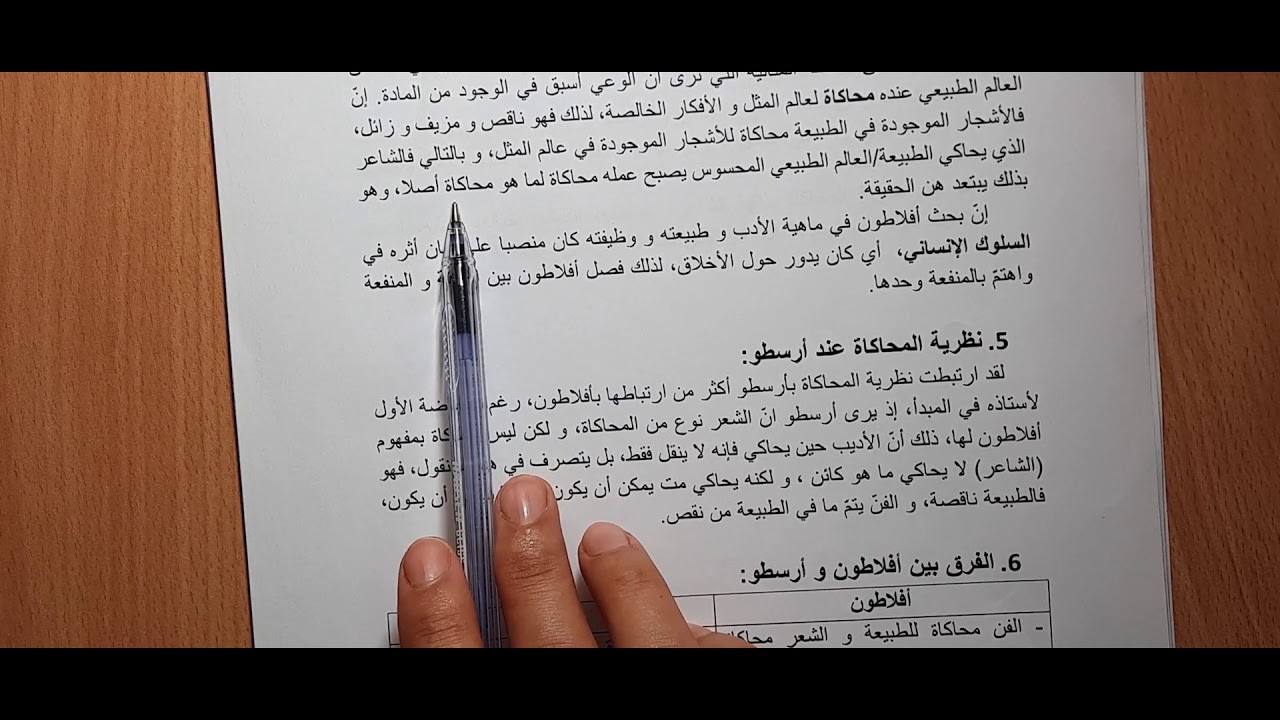 التي ترى أن الوعي أسبق في الوجود من المادة. إنّ
العالم الطبيعي عنده محاكاة لعالم المثل و الأفكار الخالصة، لذلك فهو ناقص و مزيف و زائل،
فالأشجار الموجودة في الطبيعة محاكاة للأشجار الموجودة في عالم المثل، و بالتالي فالشاعر
الذي يحاكي الطبيعة/العالم الطبيعي المحسوس يصبح عمله محاكاة لما هو محاكاة أصلا، وهو
بذلك يبتعد هن الحقيقة.
إنّ بحث أفلاطون في ماهية الأدب و طبيعته و وظيفته كان منصبا أثره في
السلوك الإنساني، أي كان يدور حول الأخلاق، لذلك فصل أفلاطون بين و المنفعة
واهتمّ بالمنفعة وحدها.
5. نظرية المحاكاة عند أرسطو:
لقد ارتبطت نظرية المحاكاة بأرسطو أكثر من ارتباطها بأفلاطون، رغم الأول
لأستاذه في المبدأ، إذ يرى أرسطو انّ الشعر نوع من المحاكاة، و لكن ليس بمفهوم
أفلاطون لها، ذلك أنّ الأديب حين يحاكي فإنه لا ينقل فقط، بل يتصرف في فهو
(الشاعر) لا يحاكي ما هو كائن ، و لكنه يحاكي مت يمكن أن يكون أن يكون،
فالطبيعة ناقصة، و الفنّ يتمّ ما في الطبيعة من نقص.
6. الفرق بين أفلاطون و أرسطو:
أفلاطون
- الفن محاكاة للطبيعة و الشعر محاكاة